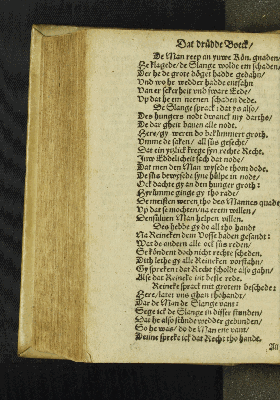 Dat drüdde Boeck/
De Man reep an yuwe Kön. gnaden/
He klagede/ de Slange wolde em schaden/
Der he de grote döget hadde gedahn/
Und wo he wedder hadde entfahn
Van er sekerheit und sware Eede/
Up dat he em nernen schaden dede.
De Slange sprack: dat ys also/
Des hungers nodt dwanck my dartho/
De dar gheit bauen alle nodt.
Here/ gy weren do bekümmert groth/
Umme de saken/ all süs gescheht/
Dat ein yslick krege syn rechte Recht.
Juw Eddelicheit sach dat node/
Dat men den Man wysede thom dode.
De süs bewysede syne hülpe in node/
Ock dachte gy an den hunger groth:
Hyrümme ginge gy tho rade/
De meisten weren tho des Mannes quade
Up dat se mochten na erem willen/
Densüluen Man helpen villen.
Des hebbe gy do all tho handt
Na Reineken dem Vosse baden gesandt:
Wat de andern alle ock süs reden/
Se könden doch nicht rechte scheden.
Dith lethe gy alle Reineken vorstahn/
Gy spreken: dat Recht scholde also gahn/
Alse dat Reineke int beste rede.
Reineke sprack mit grotem beschede:
Here/ latet uns ghan thohandt/
Dar de Man de Slange vant:
Sege ick de Slange in disser stunden/
Dat he also stünde wedder gebunden/
So he was/ do de Man ene vant/
Denne spreke ick dat Recht tho hande.